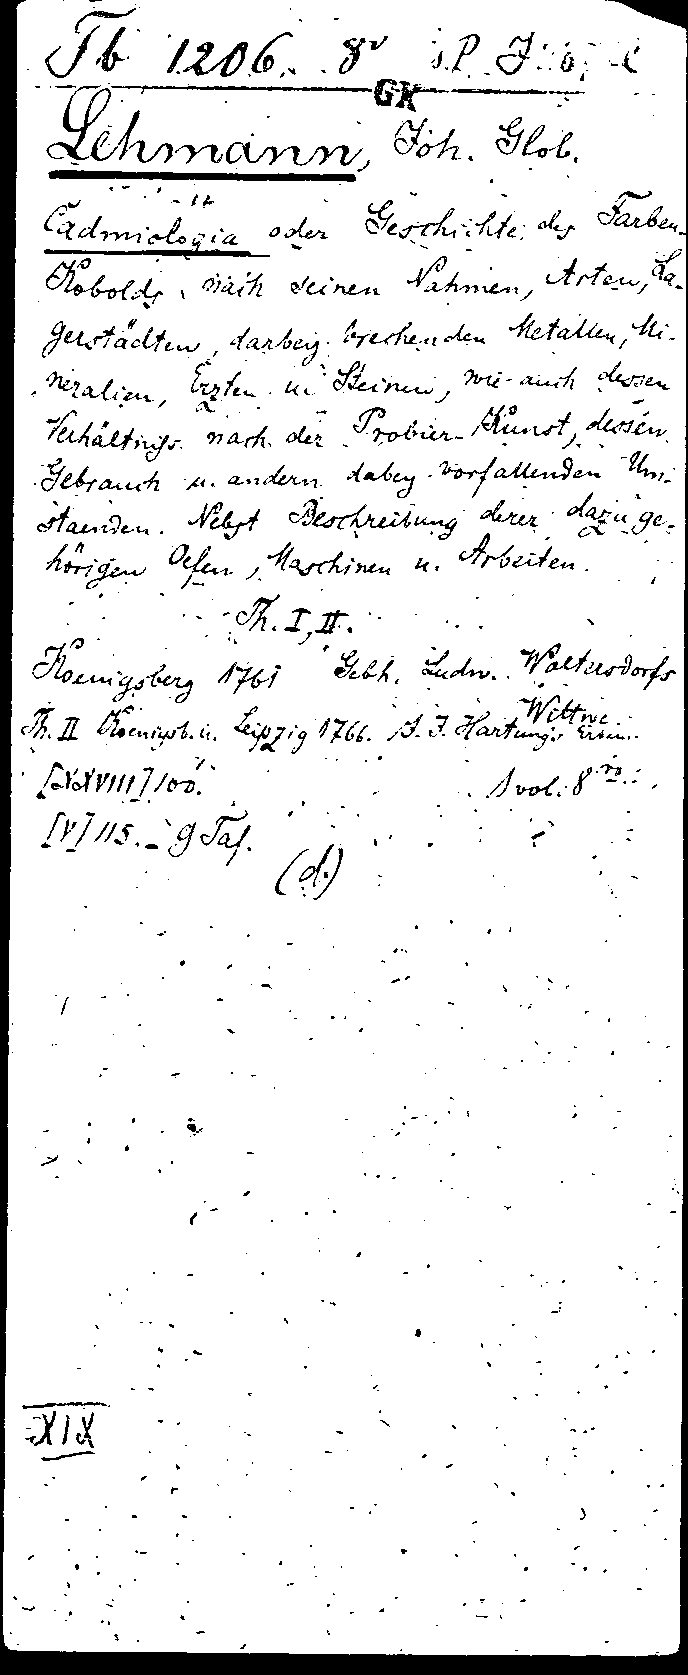 Tb 1206. 8°
GK
Lehmann, Joh. Glob.
Cadmiologia oder Geschichte des Farben-
Kobolds, nach seinen Nahmen, Arten, La-
gerstädten, darbey brechenden Metallen, Mi-
neralien, Erzten u. Steinen, wie auch dessen
Verhältniss nach der Probier-Kunst, dessen
Gebrauch u. andern dabey vorfallenden Um-
staenden. Nebst Beschreibung derer dazu ge-
hörigen Oefen, Maschinen u. Arbeiten.
Th. I, II.
Koenigsberg 1761 Gebh. Ludw. Woltersdorfs
Wittwe
Th. II Koenigsb. u. Leipzig 1766. J. Hartungs Erben.
[XXVIII] 100. 1 vol. 8vo
[V] 115. – 9 Taf.
(d.)
XIX